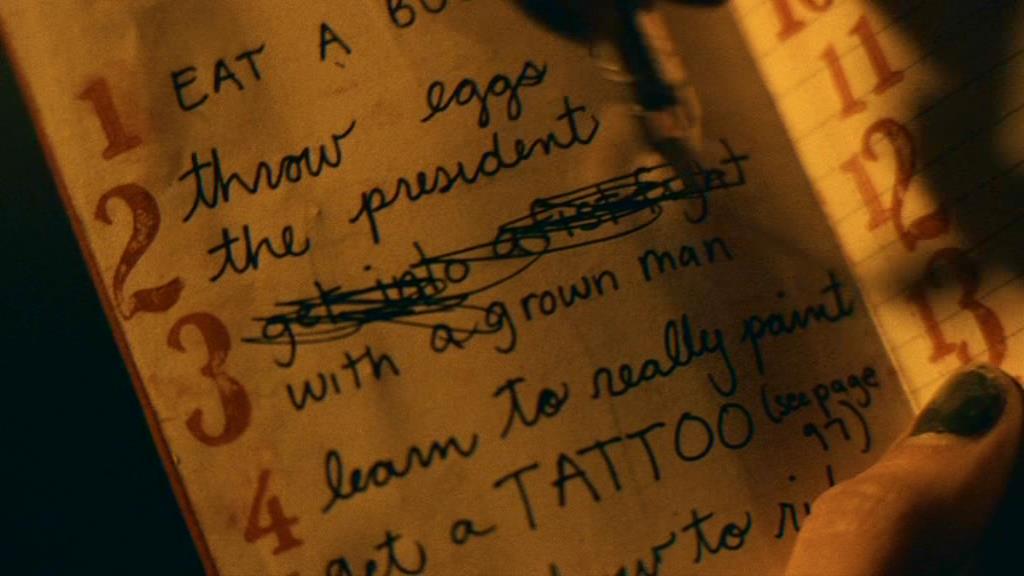 1 EAT A
2 throw eggs
the president
3 get into a fist fight
with a grown man
4 learn to really paint
get a TATTOO (see page
97)
to
10
11
12
13